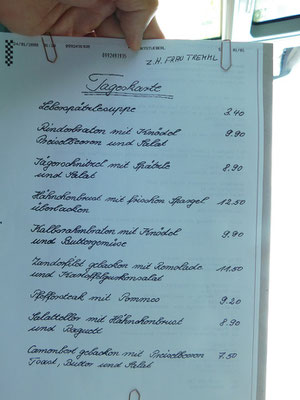 z.H. FRAU TREMML
Tageskarte
Leberspätzlesuppe 3.40
Rinderbraten mit Knödel 9.90
Preiselbeeren und Salat
Jägerschnitzel mit Spätzle 8,90
und Salat
Hähnchenbrust mit frischen Spargel 12.50
überbacken
Kalbsrahmbraten mit Knödel 9,90
und Buttergemüse
Zanderfilet gebacken mit Remolade 11,50
und Kartoffelgurkensalat
Pfeffersteak mit Pommes 9.20
Salatteller mit Hähnchenbrust 8.90
und Baguett
Camenbert gebacken mit Preiselbeeren 7.50
Toast, Butter und Salat